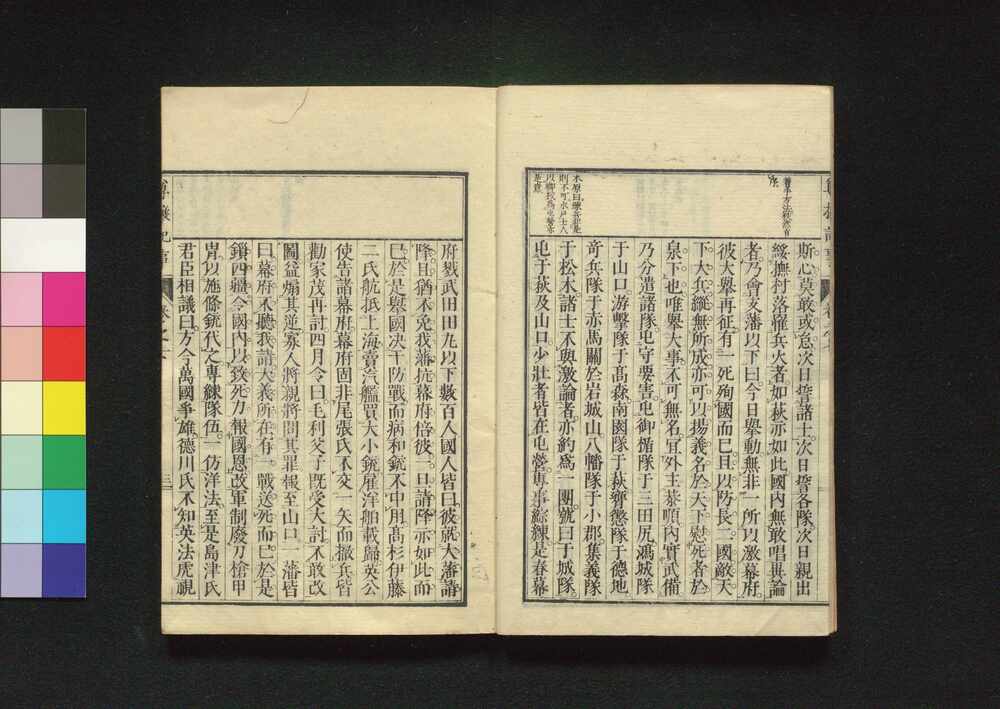 斯心莫敢或怠次日誓諸士次日誓各隊次日親出
綏撫村落罹兵火者如萩亦如此國内無敢唱異論
者乃會支藩以下曰今日擧動無非一所以激幕府
彼大擧再征有一死殉國而已且以防長二國敵天
下大兵縱無所成亦可以揚義名於天下慰死者於
泉下也唯擧大事不可無名宜外主恭順内實武備
乃分遣諸隊屯守要害屯御楯隊于三田尻鴻城隊
于山口游擊隊于高森南園隊于萩膺懲隊于德地
奇兵隊于赤馬關於岩城山八幡隊于小郡集義隊
于松木諸士不與激論者亦約爲一團號曰于城隊
屯于萩及山口少壯者皆在屯營專事練是春幕
府戮武田田丸以下數百人國人皆曰彼就大藩請
降且猶不免我藩抗幕府倍彼一旦請降亦如此而
已於是擧國決干防戰而病和銃不中用高杉伊藤
二氏航抵上海賣汽艦買大小銃雇洋舶載歸英公
使告諸幕府幕府固非尾張氏不交一矢而撤兵皆
勸家茂再討四月令曰毛利父子既受大討不敢改
圖益煽其逆寡人將親將問其罪報至山口一藩皆
曰幕府不聽我請大義所在有一戰送死而已於是
鎖四疆令國内以致死力報國恩改軍制廢刀槍甲
冑以施條銃代之專練隊伍一仿洋法至是島津氏
君臣相議曰方今萬國爭雄德川氏不知英法虎視